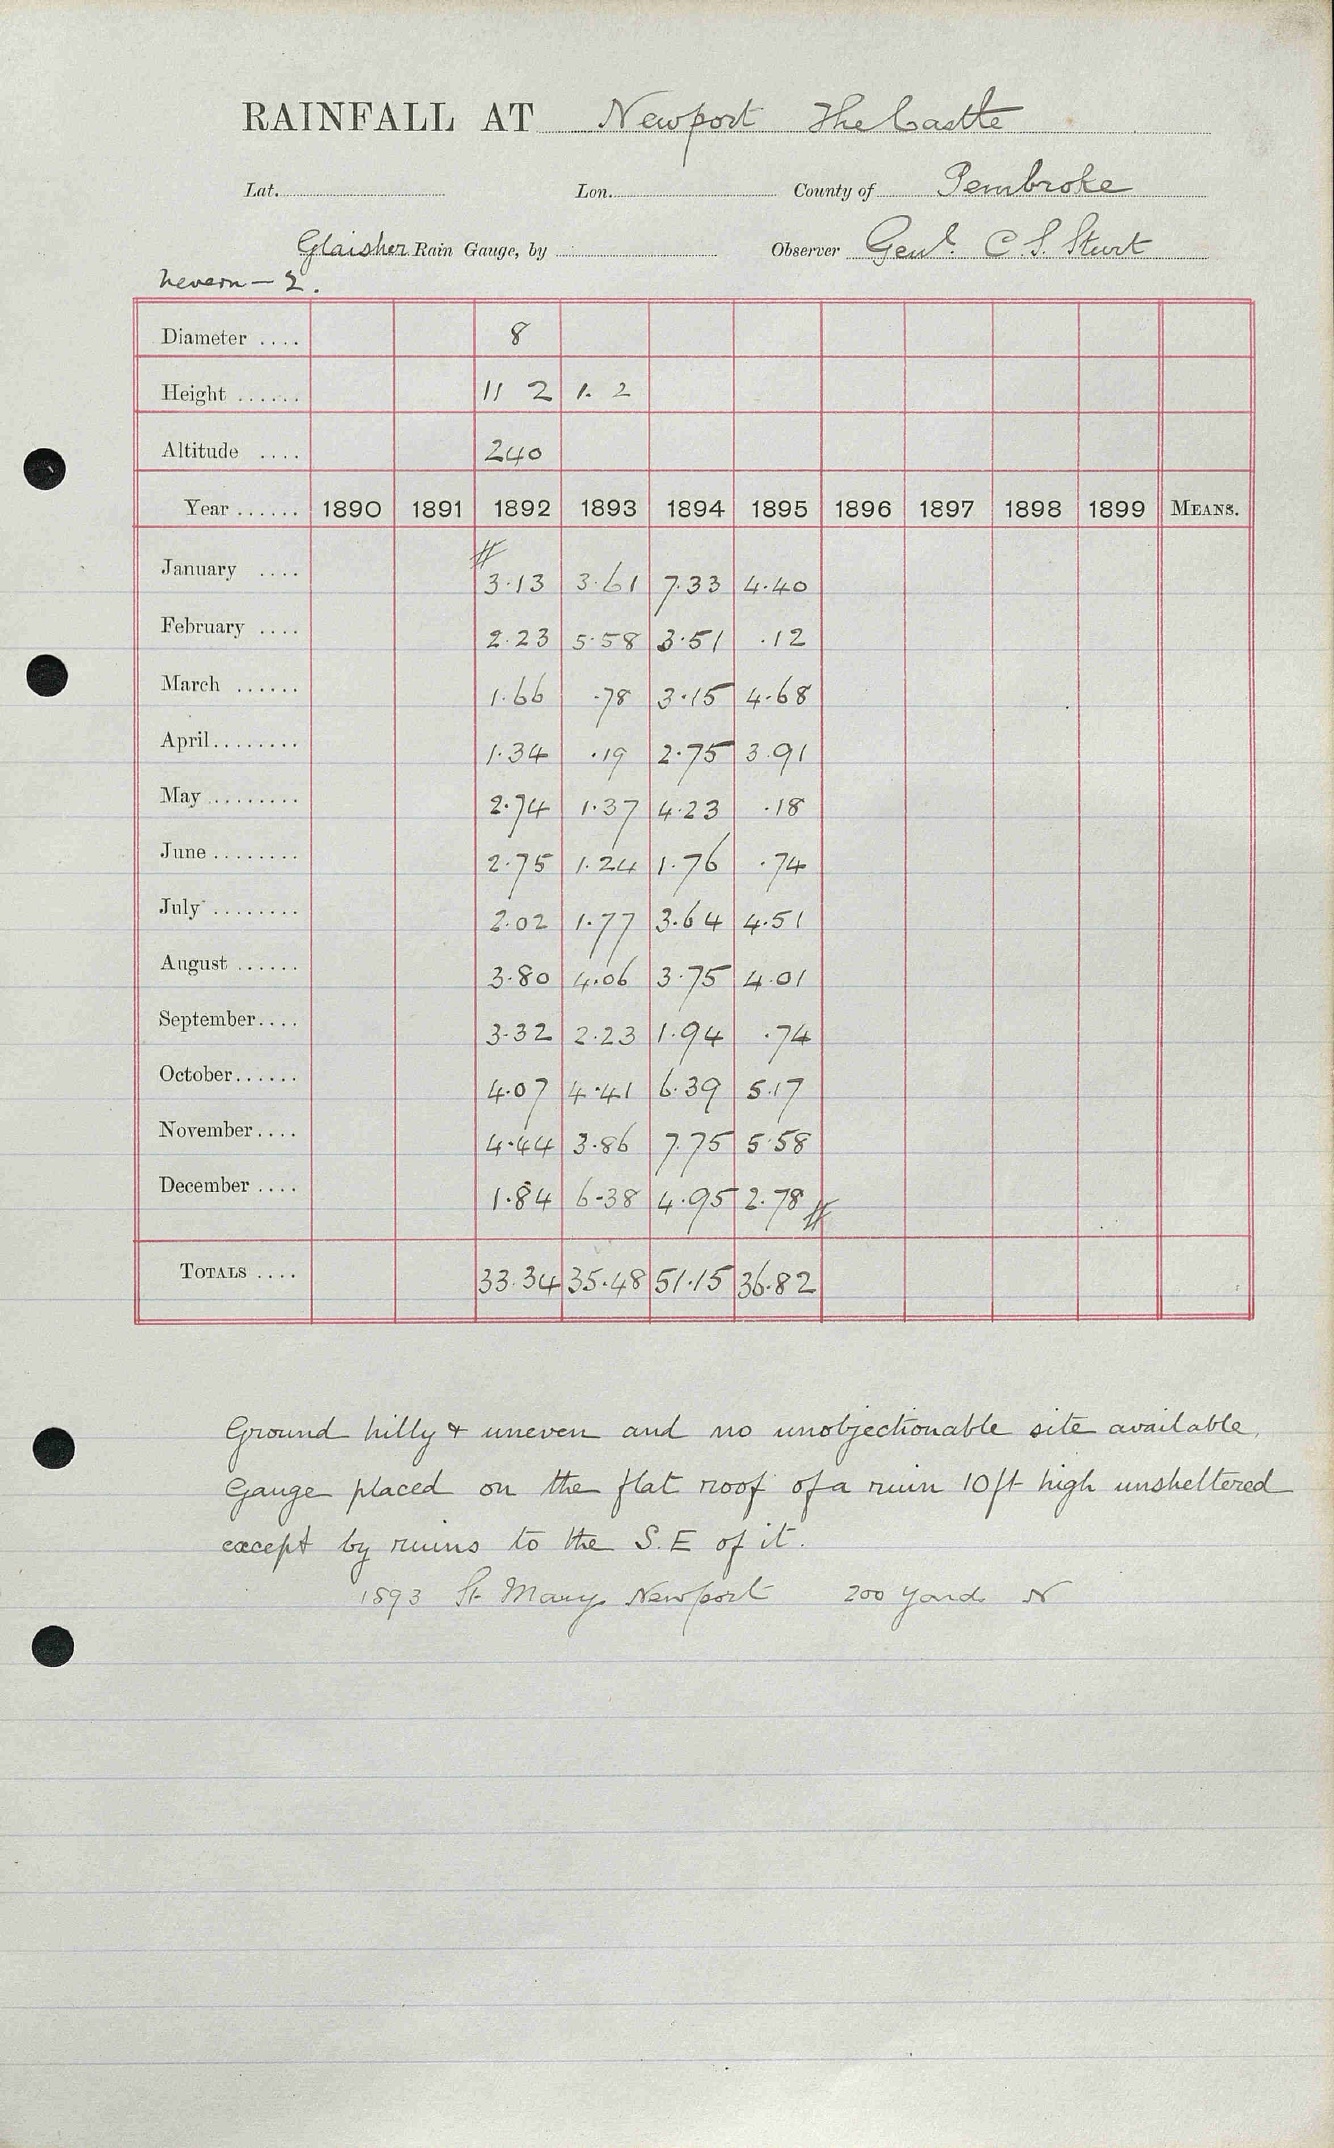 RAINFALL AT Newport The Castle
Lat. Lon. County of Pembroke
Glaisher Rain Gauge, by Observer Genl. C. S. Sturt
Nevern - 2.
Diameter .... 8
Height ...... 11 2 1. 2
Altitude .... 240
Year ...... 1890 1891 1892 1893 1894 1895 1896 1897 1898 1899 MEANS.
January .... 3.13 3.61 7.33 4.40
February .... 2.23 5.58 3.51 .12
March ...... 1.66 .78 3.15 4.68
April ........ 1.34 .19 2.75 3.91
May ......... 2.74 1.37 4.23 .18
June ........ 2.75 1.24 1.76 .74
July ........ 2.02 1.77 3.64 4.51
August ...... 3.80 4.06 3.75 4.01
September .... 3.32 2.23 1.94 .74
October ...... 4.07 4.41 6.39 5.17
November .... 4.44 3.86 7.75 5.58
December .... 1.84 6.38 4.95 2.78
TOTALS .... 33.34 35.48 51.15 36.82
Ground hilly & uneven and no unobjectionable site available.
Gauge placed on the flat roof of a ruin 10ft high unsheltered
except by ruins to the S.E of it.
1893 St Marys Newport 200 yards N